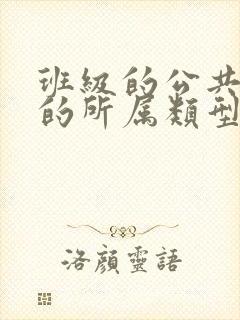 班級的公共
的所属類型
洛顔靈語